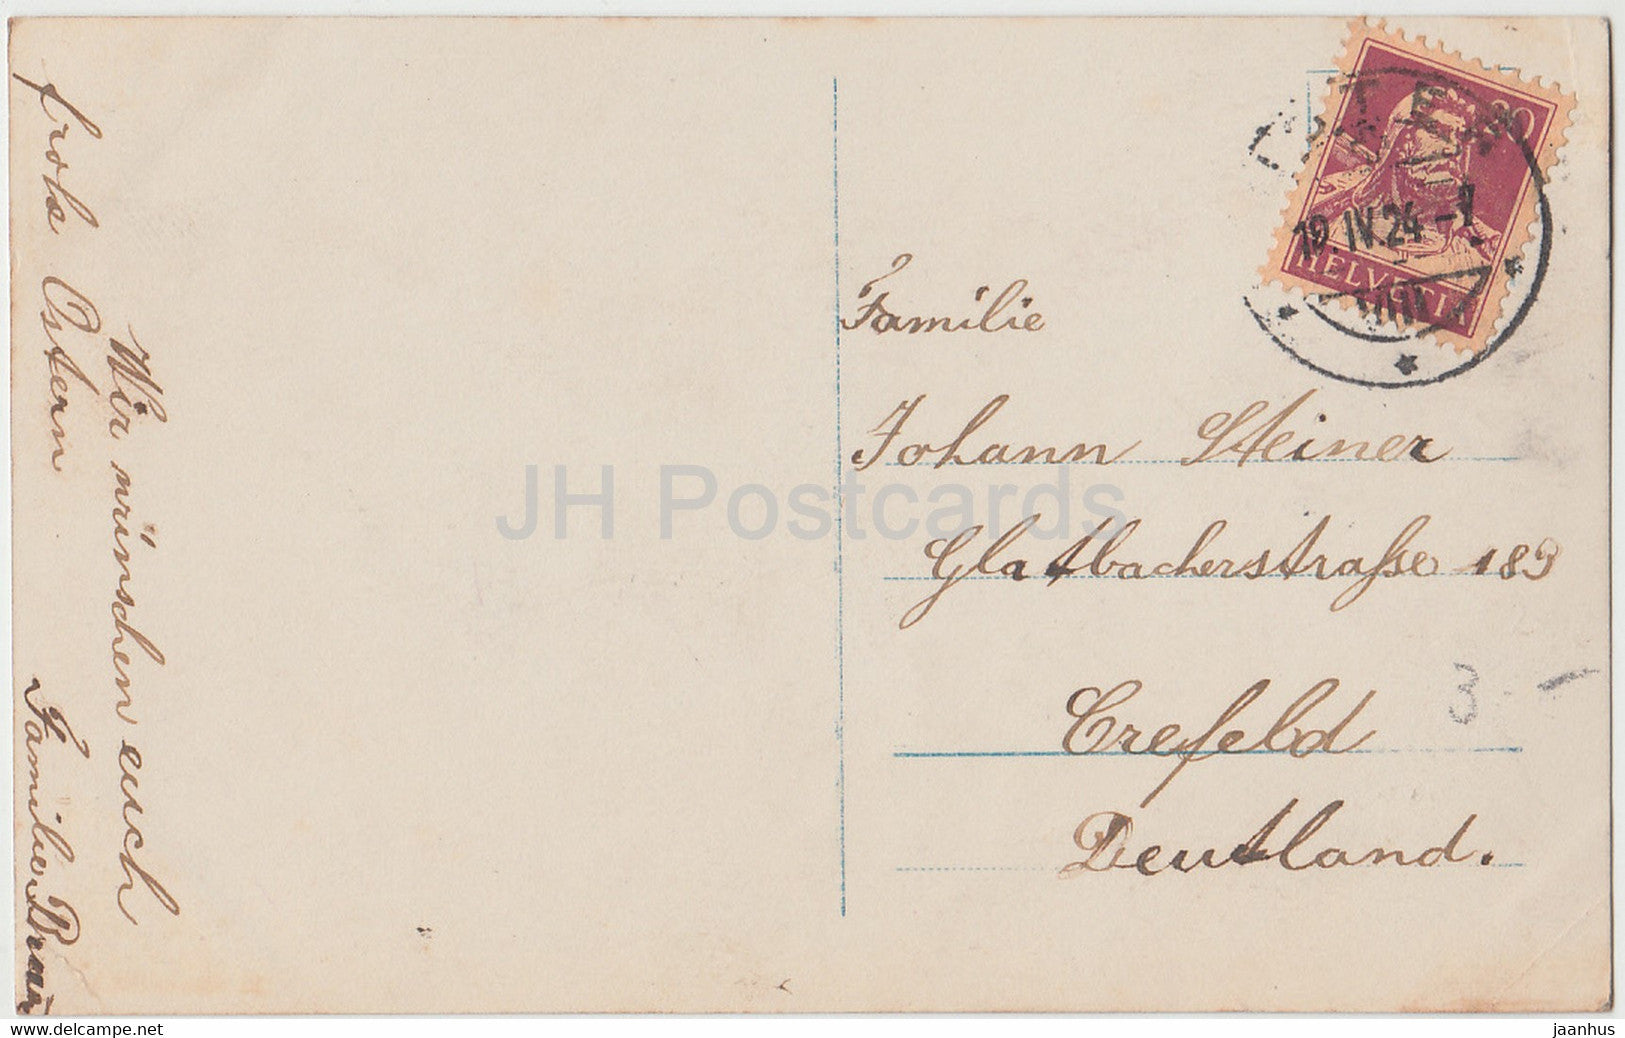 Wir wünschen euch
frohe Ostern
Familie
20
19. IV. 24 - 7
HELVETIA
Familie
Johann Steiner
Glatbacherstraße 183
Crefeld
Deutland.
3 -
JH Postcards
delcampe.net
jaanhus